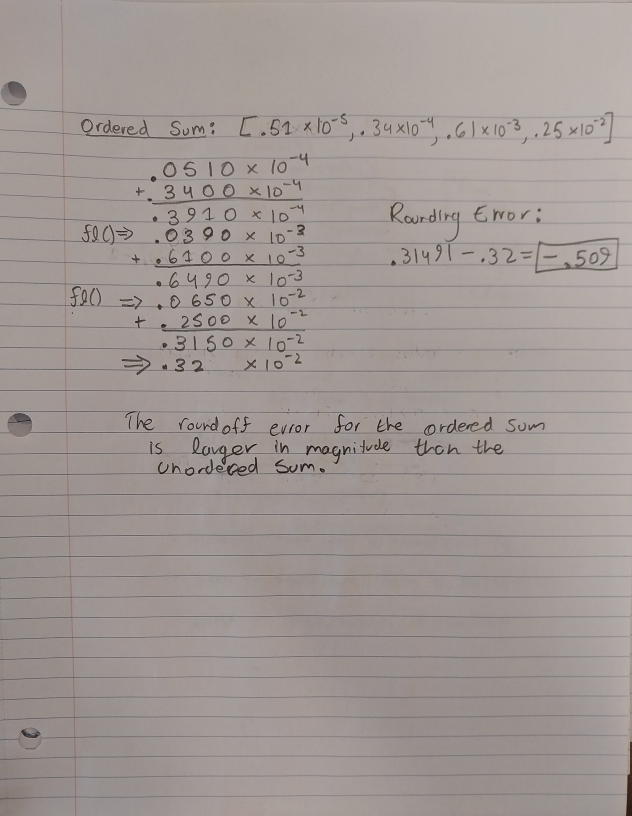 Ordered Sum: [.51 × 10⁻⁵, .34×10⁻⁴, .61×10⁻³, .25 ×10⁻²]
.0510 × 10⁻⁴
+ .3400 ×10⁻⁴
.3910 × 10⁻⁴
fl()⇒ .0390 × 10⁻³
+ .6100 × 10⁻³
.6490 × 10⁻³
fl() ⇒ .0650 × 10⁻²
+ .2500 × 10⁻²
.3150 × 10⁻²
⇒ .32 × 10⁻²
Rounding Error:
.31491 - .32 = -.509
The roundoff error for the ordered sum
is larger in magnitude than the
unordered sum.